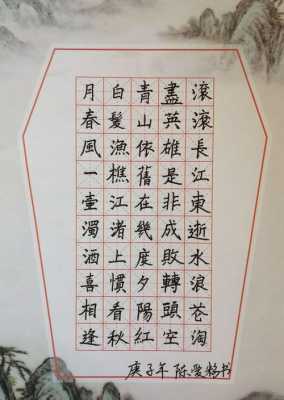 滾滾長江東逝水浪花淘
盡英雄是非成敗轉頭空
青山依舊在幾度夕陽紅
白髮漁樵江渚上慣看秋
月春風一壺濁酒喜相逢
庚子年 陈书